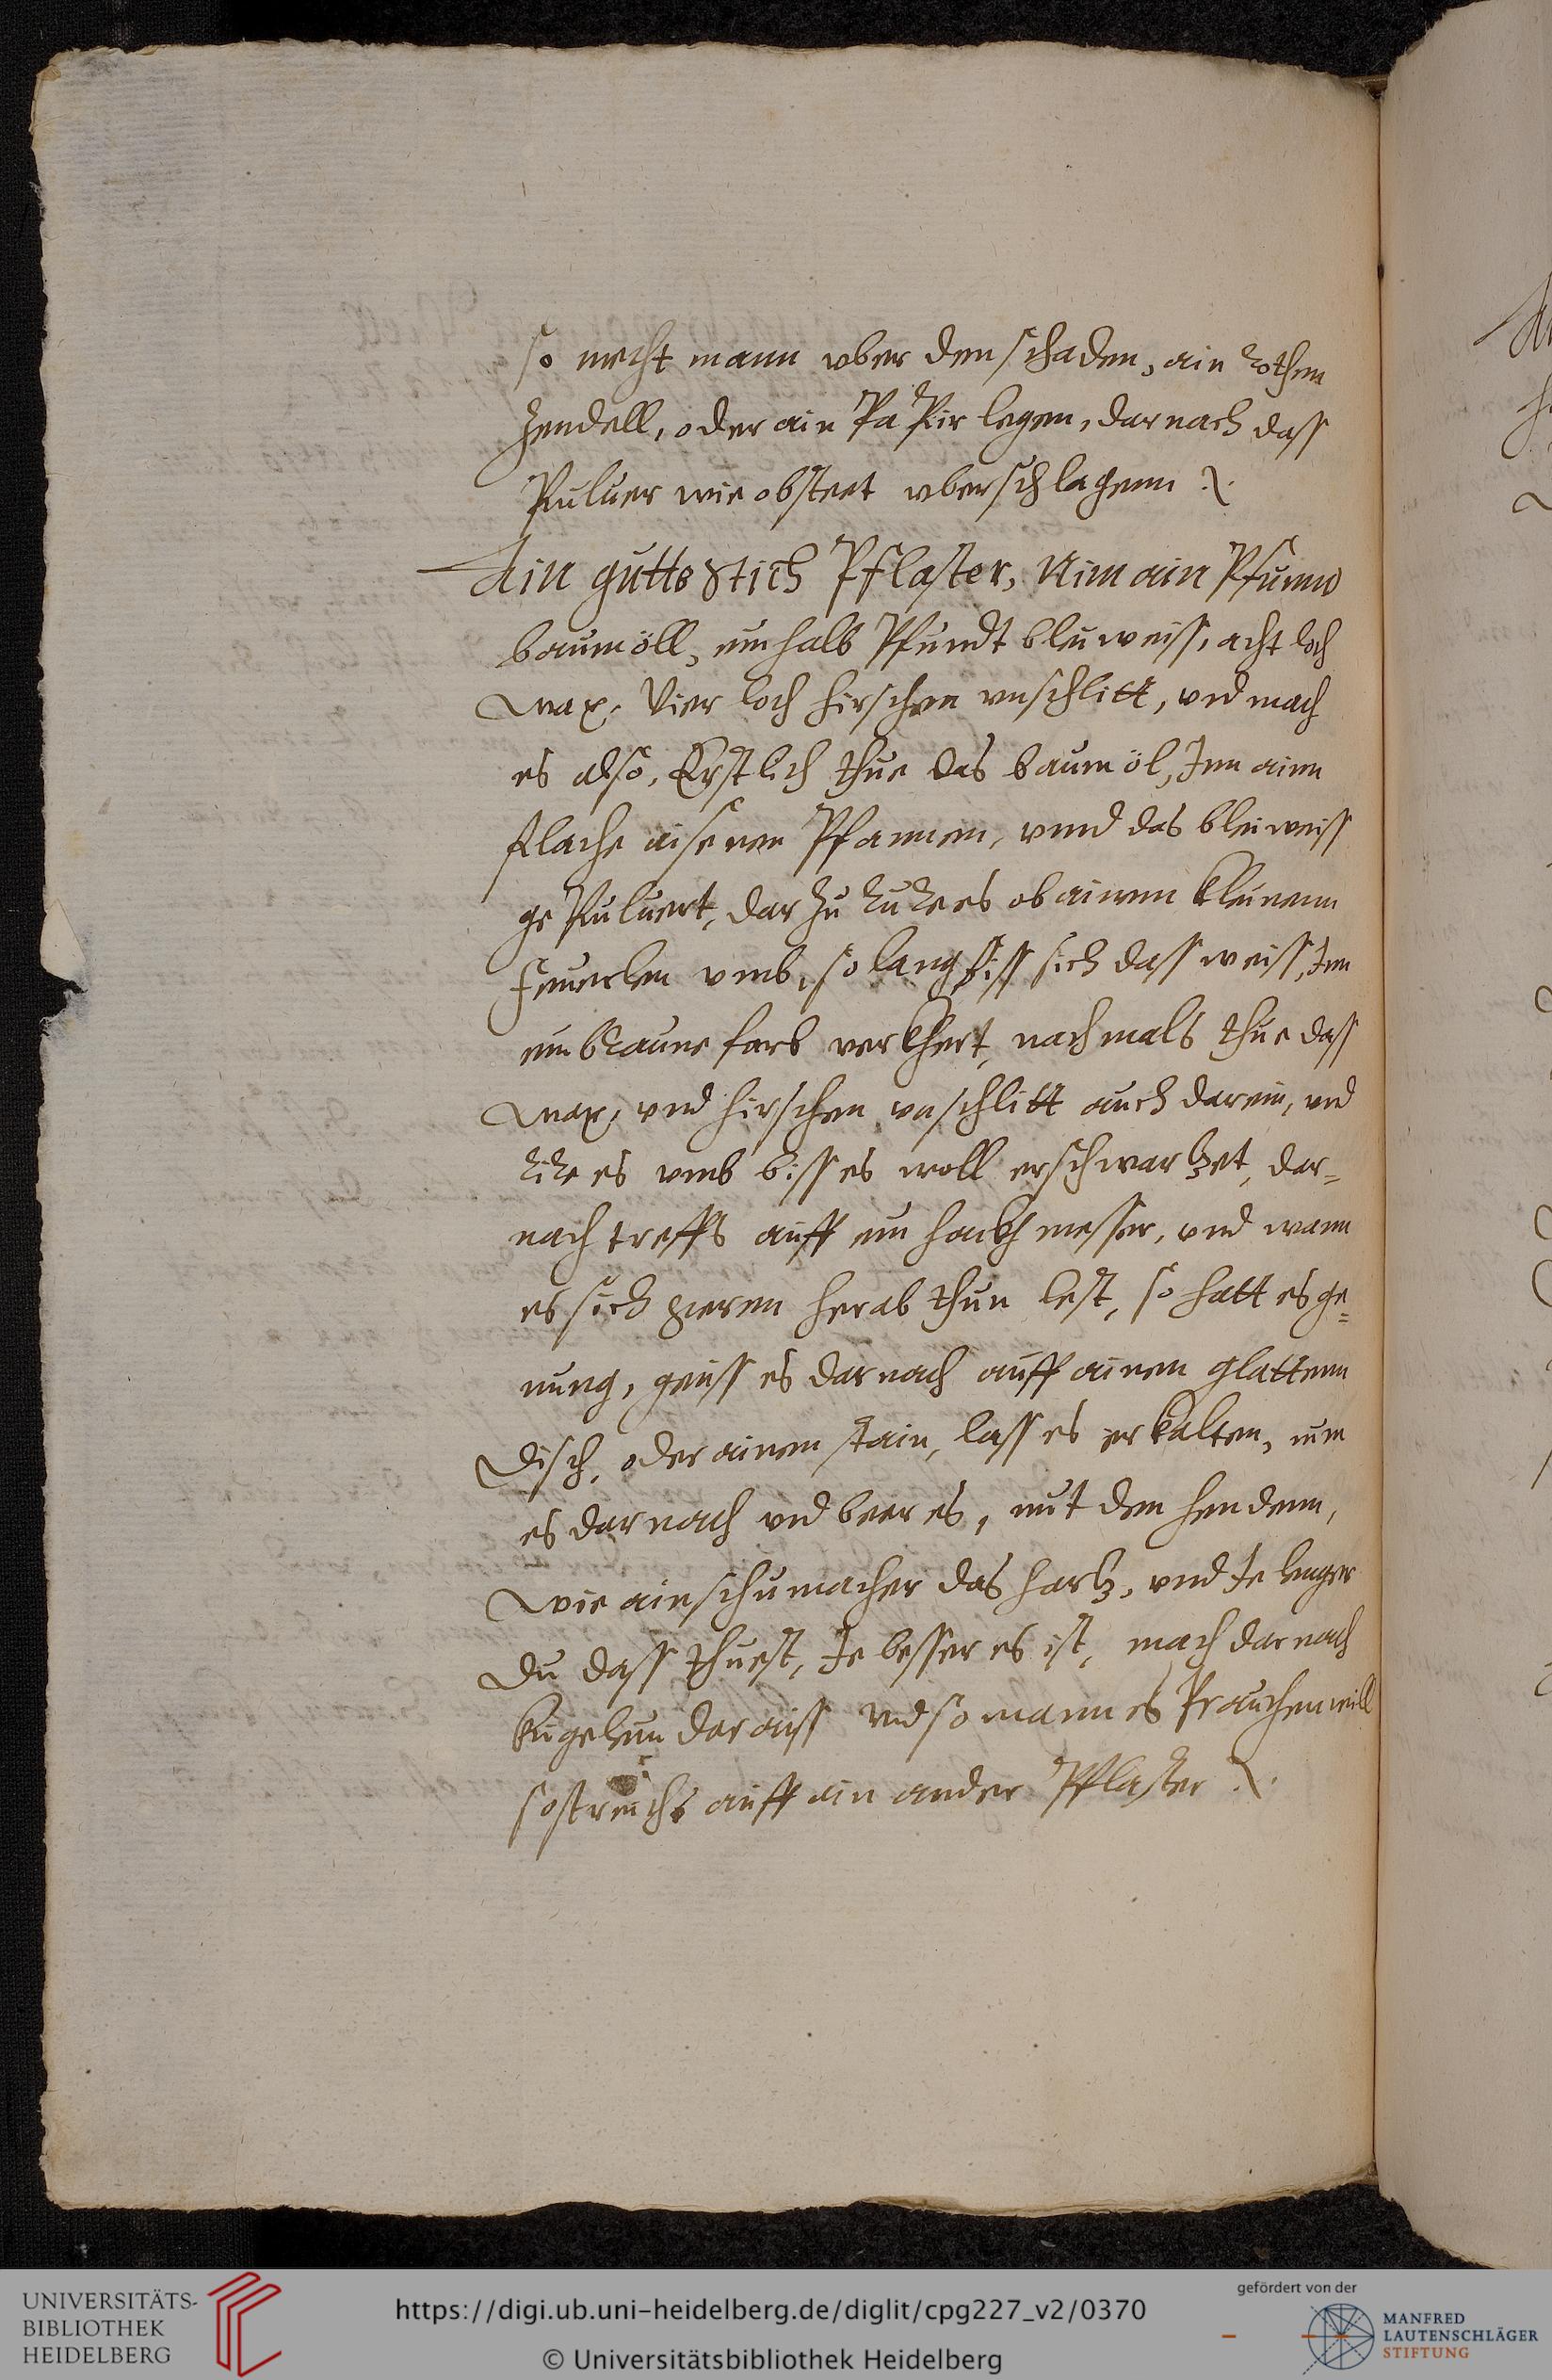 so mecht mann vber den schaden, ain rothen
Zendell, oder ain PaPir legen, darnach dass
Puluer wie obsteet vberschlagenn
Ain gutts Stich Pflaster, Nim ain Pfunnd
baumöll, ein halb Pfundt bleiweiss, acht loth
wax, Vier loth hirschen vnschlitt, vnd mach
es also, Erstlich thue das baumöl, Inn ainn
flache eisenen Pfannen, vnnd das bleiweiss
gePuluert, darzu Rures ob ainem kleinenn
feuerlen vmb, so lang biss sich dass weiss, Inn
ein braune farb verkhert, nachmals thue dass
wax, vnd hirschen vnschlitt auch darein, vnd
rire es vmb biss es woll erschwartzet, dar=
nach treffs auff ein hackh messer, vnd wann
es sich geren herab thun lest, so hatt es ge=
nung, geuss es darnach auff ainen glattenn
disch, oder ainen stain, lass es erkalten, nim
es darnach vnd beer es, mit den hendenn,
wie ain schumacher das hartz, vnd Je lenger
du dass thuest, Je besser es ist, mach darnach
kugelein darauss vnd so mann es Prauchen will
so streichs auff ain ander Pflaster
UNIVERSITÄTS-
BIBLIOTHEK
HEIDELBERG
https://digi.ub.uni-heidelberg.de/diglit/cpg227_v2/0370
© Universitätsbibliothek Heidelberg
gefördert von der
MANFRED
LAUTENSCHLÄGER
STIFTUNG